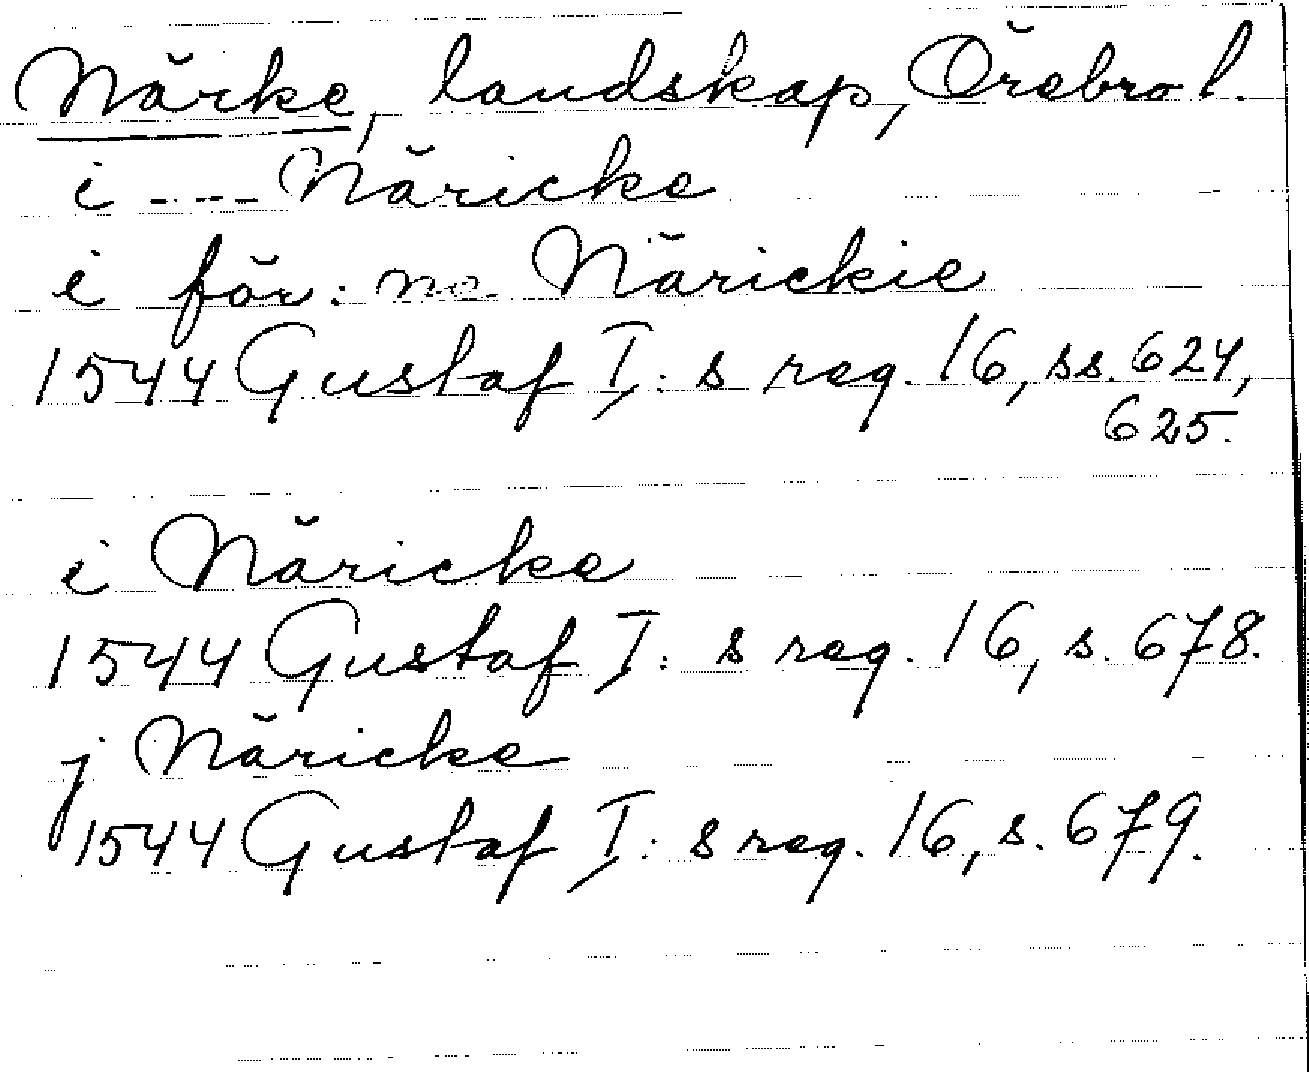 Närke, landskap, Örebro l.
i ---- Näricke
i för: no Närickie
1544 Gustaf I: s reg. 16, ss. 624,
625.
i Näricke
1544 Gustaf I: s reg. 16, s. 678.
j Näricke
1544 Gustaf I: s reg. 16, s. 679.